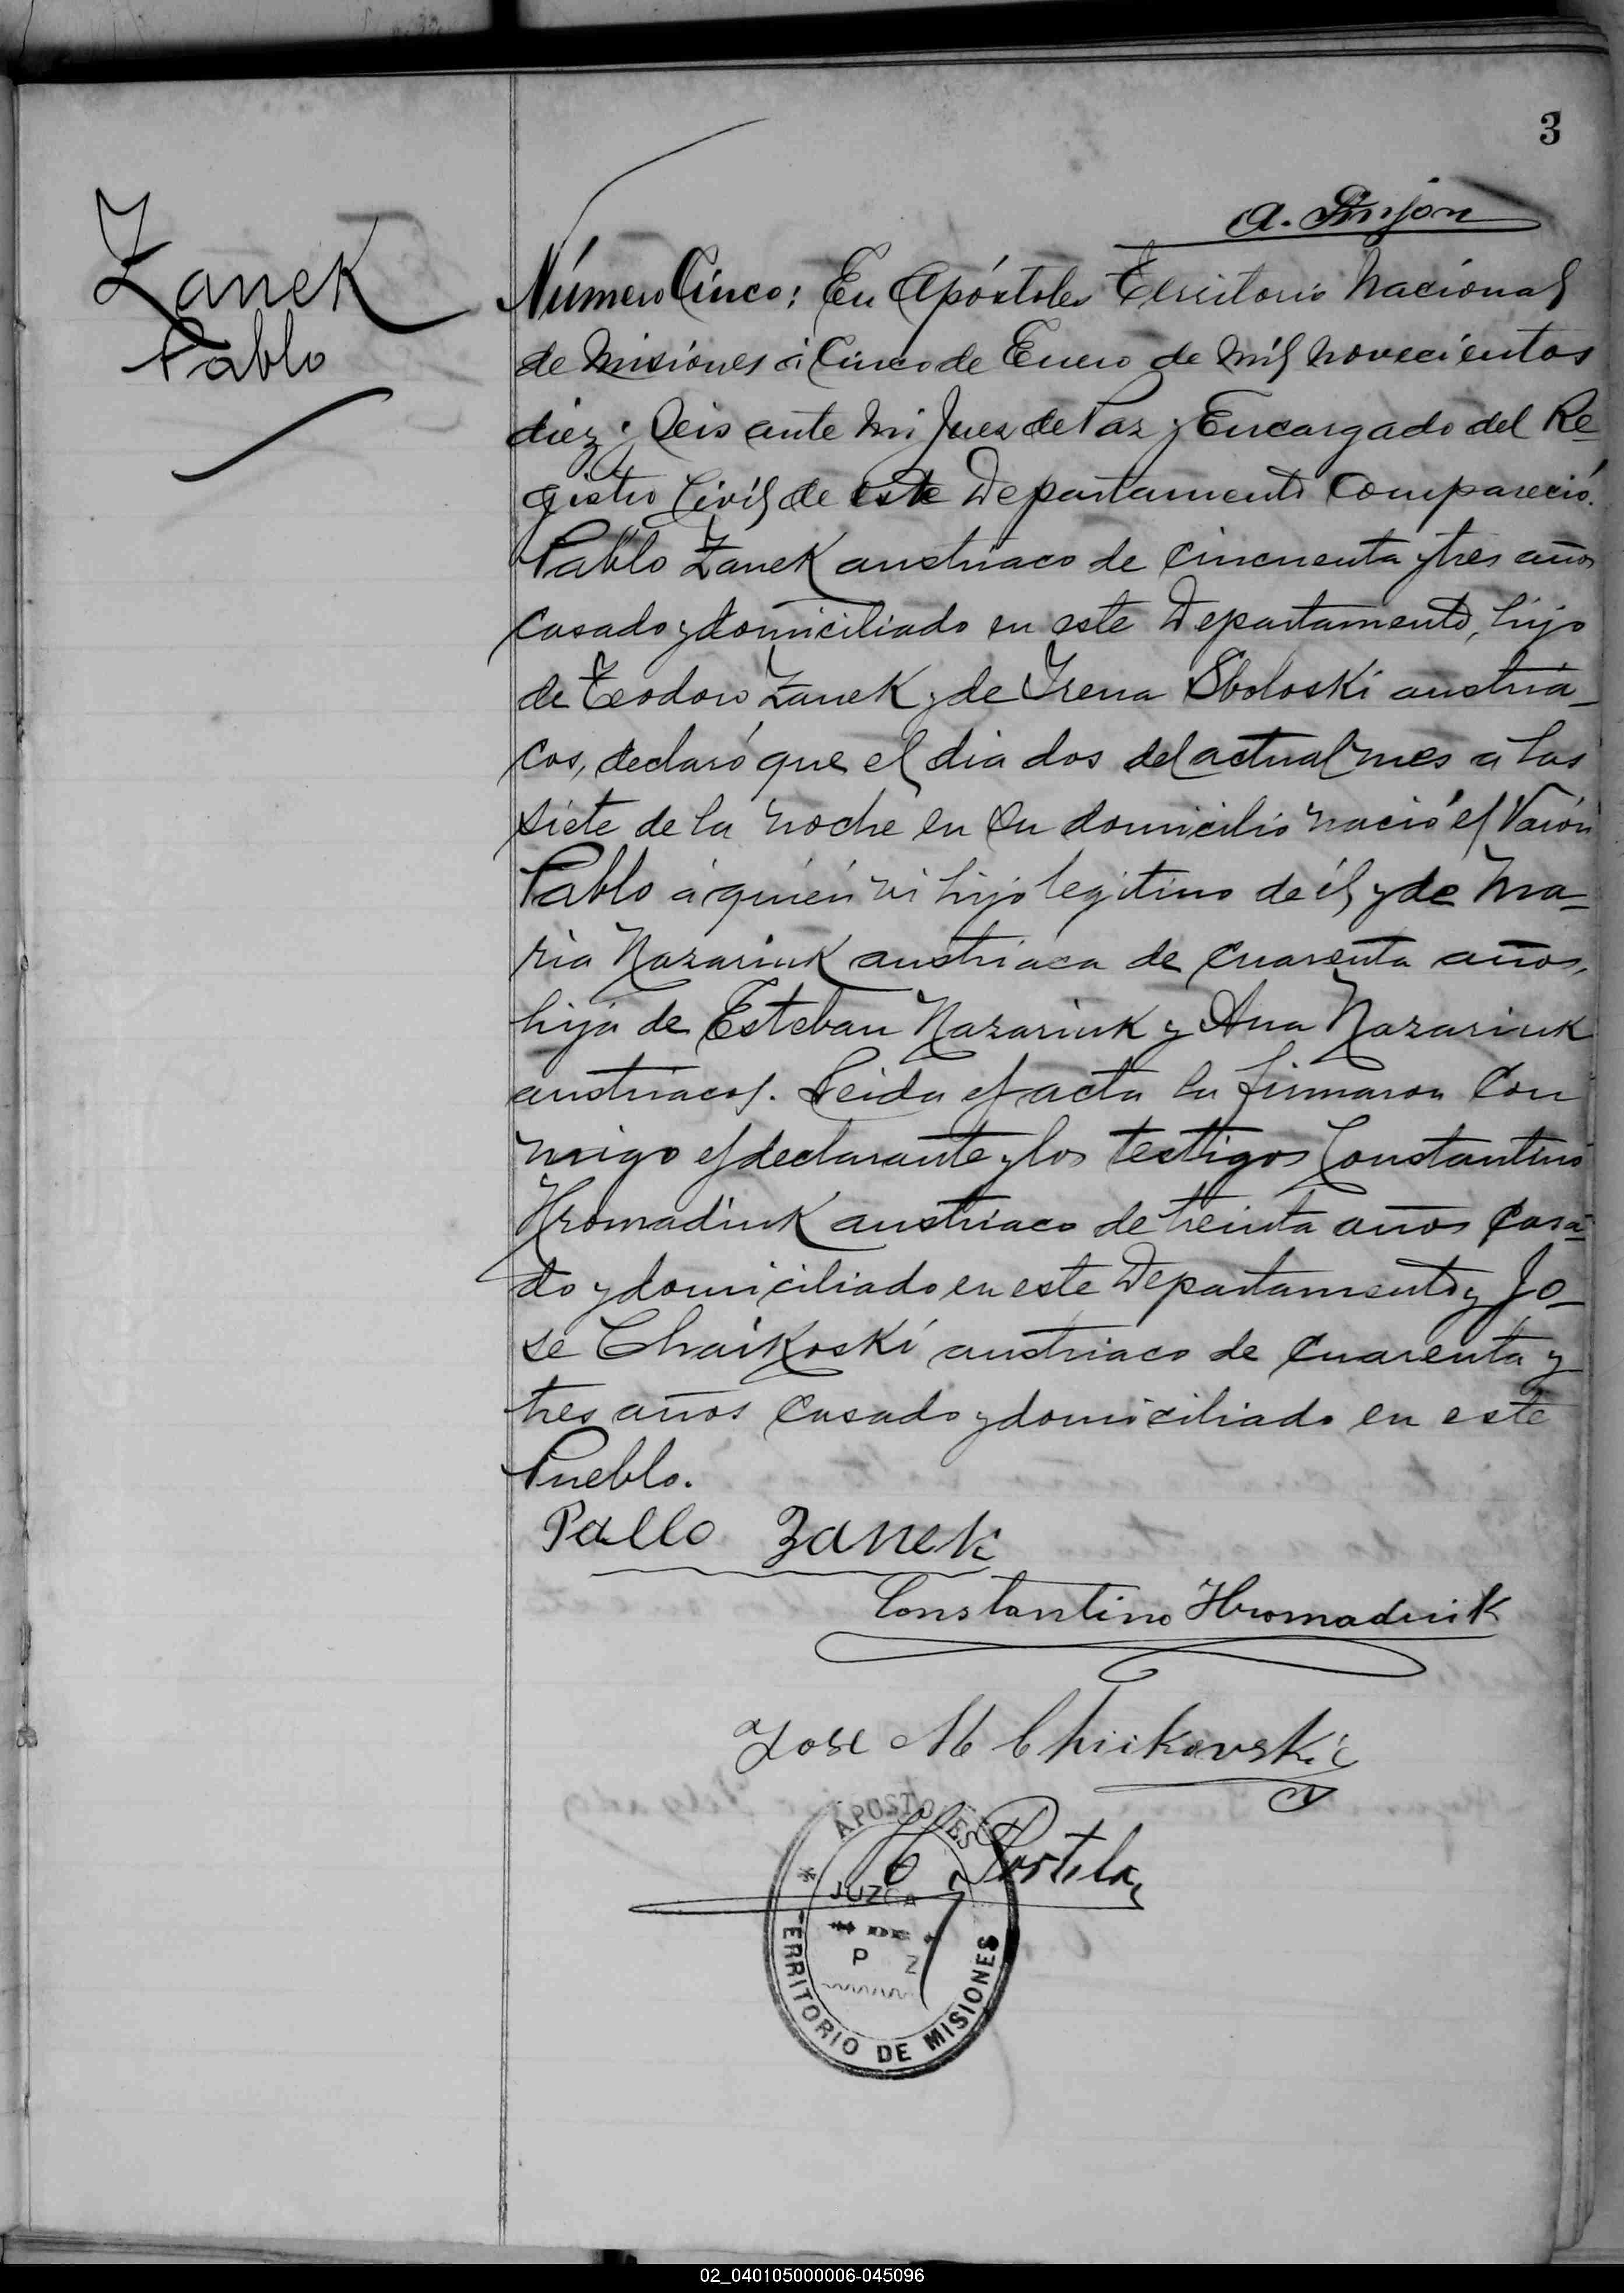 3
A. Pinjon
Zanek
Pablo
Número Cinco: En Apóstoles Territorio Nacional
de Misiones á Cinco de Enero de mil novecientos
diez y seis ante mi Juez de Paz y Encargado del Re-
gistro Civil de este Departamento Compareció.
Pablo Zanek austriaco de cincuenta y tres años
casado y domiciliado en este Departamento, hijo
de Teodoro Zanek y de Irena Sboloski austria-
cos, declaró que el dia dos del actual mes a las
siete de la noche en su domicilio nació el Varón
Pablo á quién vi hijo legitimo de él y de Ma-
ria Nazariuk austriaca de cuarenta años,
hija de Esteban Nazariuk y Ana Nazariuk
austriacos. Leida el acta la firmaron Con
migo el declarante y los testigos Constantino
Hromadiuk austriaco de treinta años Casa-
do y domiciliado en este Departamento y Jo-
se Chaikoski austriaco de cuarenta y
tres años Casado y domiciliado en este
Pueblo.
Pallo Zanek
Constantino Hromadiuk
Jose M Chickovski
Portela
APOSTOLES
JUZGA
DE
P Z
TERRITORIO DE MISIONES
02_040105000006-045096